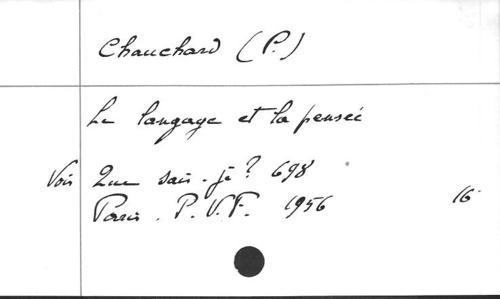 Chauchard (P.)
Le langage et la pensée
Voir Que sais-je? 698
Paris. P.U.F. 1956 16°